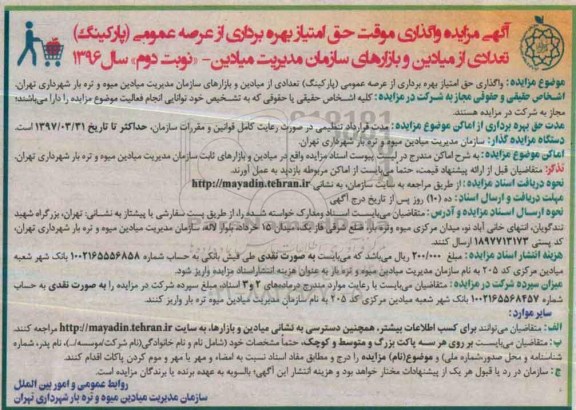 آگهی مزایده واگذاری موقت حق امتیاز بهره برداری از عرصه عمومی (پارکینگ)
تعدادی از میادین و بازارهای سازمان مدیریت میادین- «نوبت دوم» سال ۱۳۹۶
موضوع مزایده: واگذاری حق امتیاز بهره برداری از عرصه عمومی (پارکینگ) تعدادی از میادین و بازارهای سازمان مدیریت میادین میوه و تره بار شهرداری تهران.
اشخاص حقیقی و حقوقی مجاز به شرکت در مزایده: کلیه اشخاص حقیقی یا حقوقی که به تشخیص خود توانایی انجام فعالیت موضوع مزایده را دارا می‌باشند؛
مجاز به شرکت در مزایده هستند.
مدت حق بهره برداری از اماکن موضوع مزایده: مدت قرارداد تنظیمی در صورت رعایت کامل قوانین و مقررات سازمان، حداکثر تا تاریخ ۱۳۹۷/۰۳/۳۱ است.
دستگاه مزایده گذار: سازمان مدیریت میادین میوه و تره بار شهرداری تهران.
اماکن موضوع مزایده: به شرح اماکن مندرج در لیست پیوست اسناد مزایده واقع در میادین و بازارهای ثابت سازمان مدیریت میادین میوه و تره بار شهرداری تهران.
تذکر: متقاضیان قبل از ارائه پیشنهاد قیمت، حتماً می‌بایست از اماکن مربوطه بازدید به عمل آورند.
نحوه دریافت اسناد مزایده: از طریق مراجعه به سایت سازمان، به نشانی http://mayadin.tehran.ir
مهلت دریافت و ارسال اسناد: ده (۱۰) روز پس از تاریخ درج آگهی
نحوه ارسال اسناد مزایده و آدرس: متقاضیان می‌بایست اسناد ومدارک خواسته شده را، از طریق پست سفارشی یا پیشتاز به نشانی: تهران، بزرگراه شهید
تندگویان، انتهای خانی آباد نو، میدان مرکزی میوه وتره بار، ضلع شرقی فاز یک، میدان ۱۵ خرداد، بلوار لاله،
کد پستی ۱۸۹۷۷۱۳۱۷۳ ارسال کنند.
هزینه انتشار اسناد مزایده: مبلغ ۲۰۰/۰۰۰ ریال می‌باشد که می‌بایست به صورت نقدی طی فیش بانکی به حساب شماره ۱۰۰۲۱۶۵۵۵۶۸۵۸ بانک شهر شعبه
میادین مرکزی کد ۲۰۵ به نام سازمان مدیریت میادین میوه و تره بار به عنوان هزینه انتشار اسناد مزایده واریز شود.
میزان سپرده شرکت در مزایده: متقاضیان می‌بایست با رعایت موارد مندرج درماده‌های ۲ و ۳ اسناد، مبلغ سپرده شرکت در مزایده را به صورت نقدی به حساب
شماره ۱۰۰۲۱۶۵۵۶۸۴۵۷ بانک شهر شعبه میادین مرکزی کد ۲۰۵ به نام سازمان مدیریت میادین میوه و تره بار واریز کنند.
سایر موارد:
الف: متقاضیان می‌توانند برای کسب اطلاعات بیشتر، همچنین دسترسی به نشانی میادین و بازارها، به سایت http://mayadin.tehran.ir مراجعه کنند.
ب: متقاضیان می‌بایست بر روی هر سه پاکت بزرگ و متوسط و کوچک، حتماً مشخصات خود (شامل نام و نام خانوادگی/نام شرکت/موسسه/...)، نام پدر، شماره
شناسنامه و محل صدور/شماره ملی) و موضوع(نام) مزایده را درج و مطابق مفاد اسناد نسبت به امضاء و مهر یا مهر و موم کردن پاکات اقدام کنند.
ج: سازمان در رد یا قبول هر یک از پیشنهادات مختار خواهد بود و هزینه انتشار این آگهی؛ بالسویه به عهده برنده یا برندگان مزایده است.
روابط عمومی و امور بین الملل
سازمان مدیریت میادین میوه و تره بار شهرداری تهران